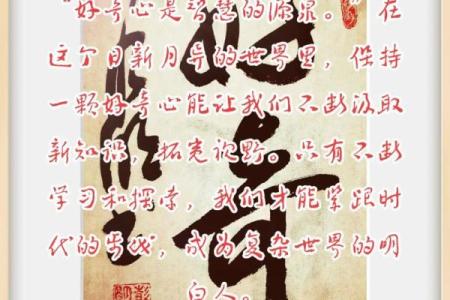 “好奇心是智慧的源泉。”在
这个日新月异的世界里，保持
一颗好奇心能让我们不断汲取
新知识，拓宽视野。只有不断
学习和探索，我们才能紧跟时
代的步伐，成为复杂世界的明
白人。
好奇